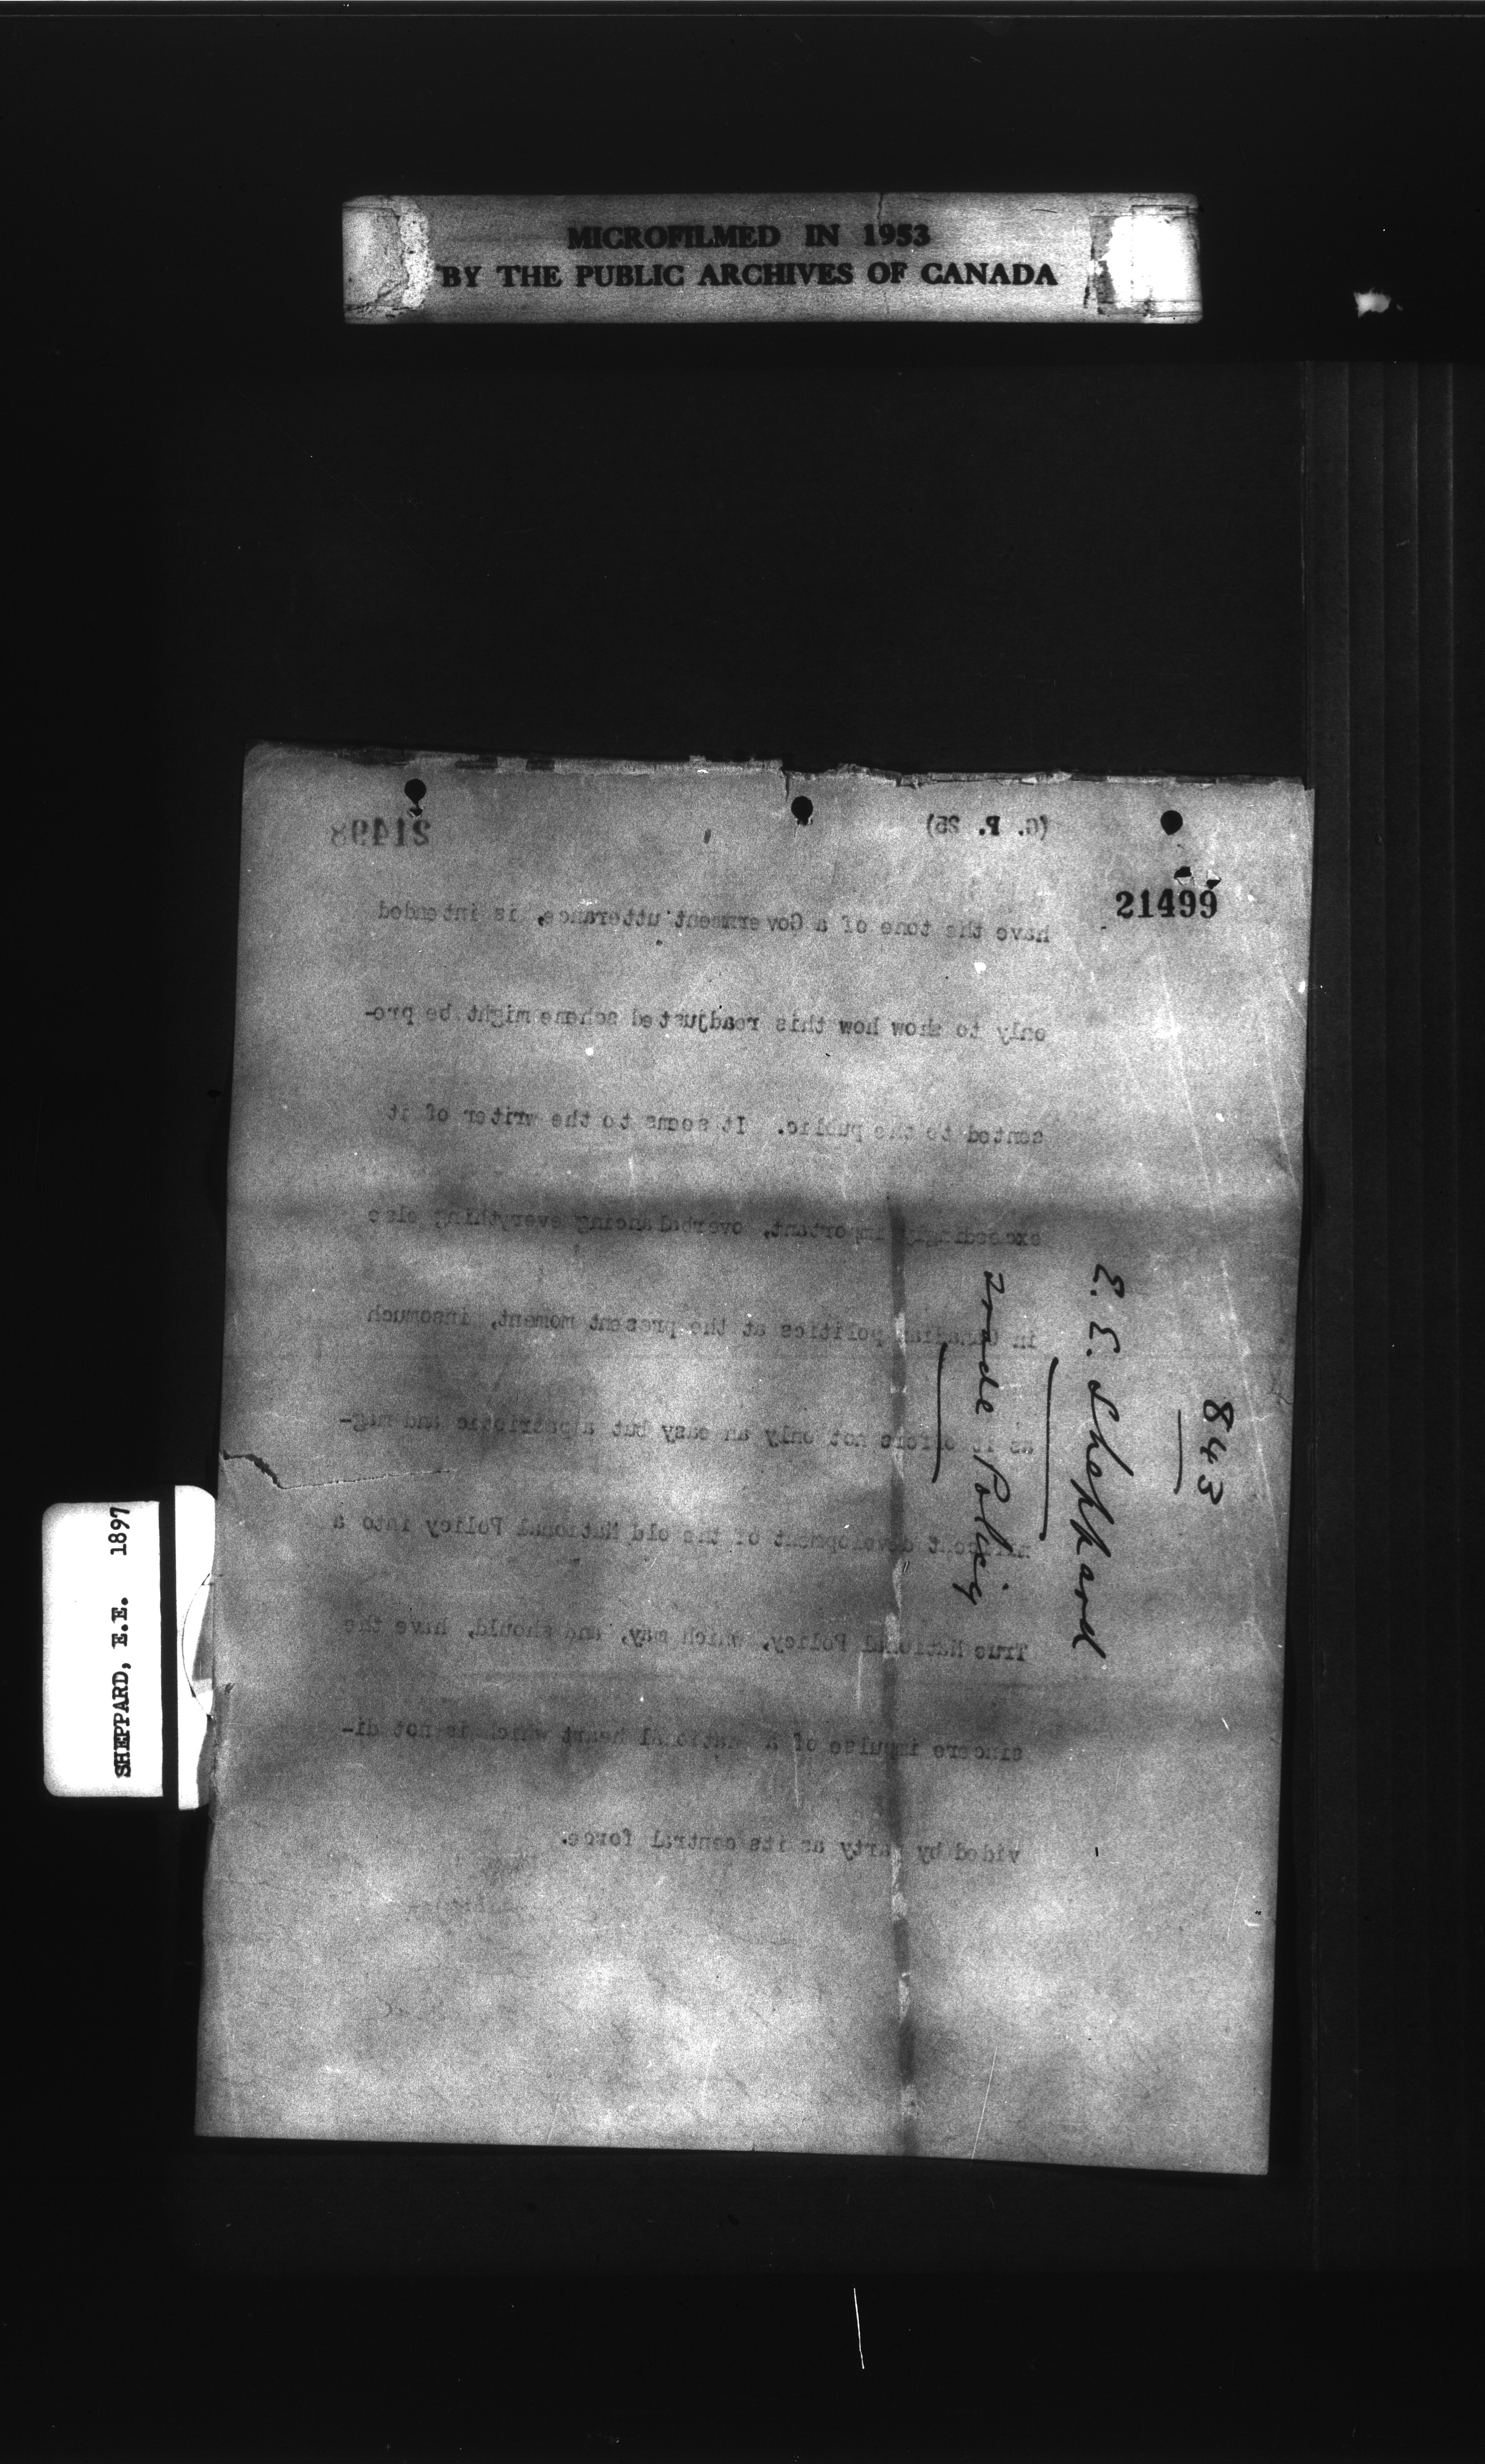 MICROFILMED IN 1953
BY THE PUBLIC ARCHIVES OF CANADA
21498
(G. P. 25)
21499
have the tone of a Government utterance, is intended
only to show how this readjusted scheme might be pre-
sented to the public. It seems to the writer of it
exceedingly important, overbalancing everything else
in Canadian politics at the present moment, insomuch
as it offers not only an easy but a patriotic and mag-
nificent development of the old National Policy into a
True National Policy, which may, and should, have the
sincere impulse of a national heart which is not di-
vided by party as its central force.
843
E. E. Sheppard
Trade Policy
SHEPPARD, E.E. 1897